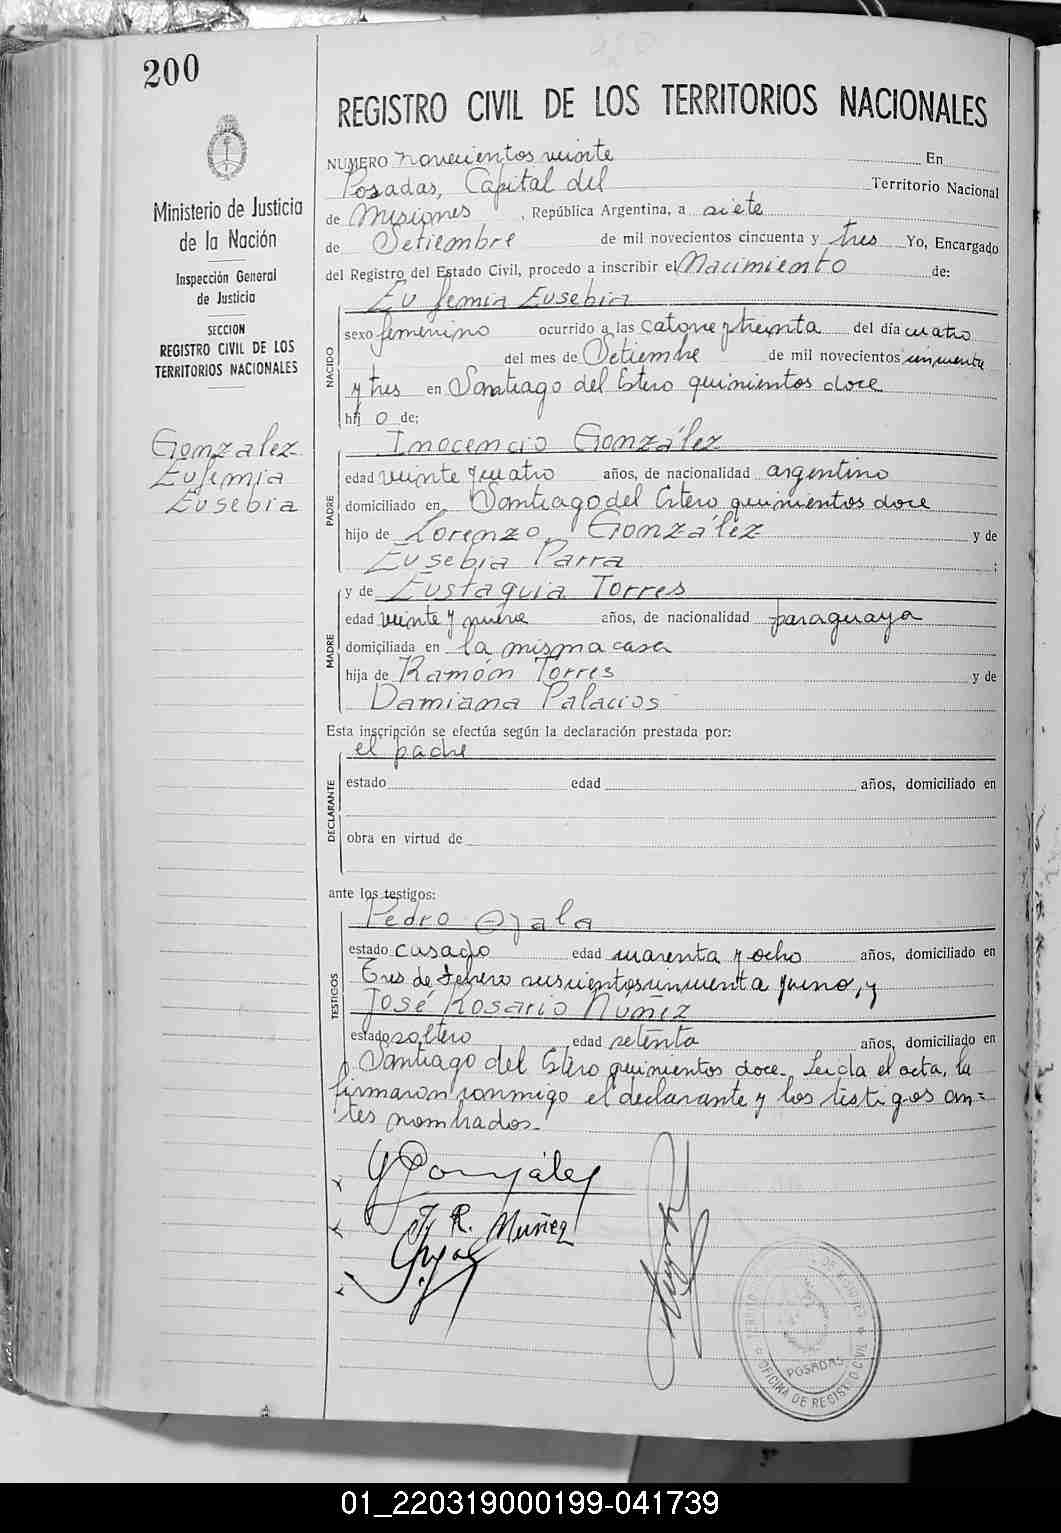 200
REGISTRO CIVIL DE LOS TERRITORIOS NACIONALES
Ministerio de Justicia
de la Nación
Inspección General
de Justicia
SECCION
REGISTRO CIVIL DE LOS
TERRITORIOS NACIONALES
González
Eufemia
Eusebia
NUMERO novecientos veinte En
Posadas, Capital del Territorio Nacional
de Misiones, República Argentina, a siete
de Setiembre de mil novecientos cincuenta y tres Yo, Encargado
del Registro del Estado Civil, procedo a inscribir el Nacimiento de:
Eufemia Eusebia
NACIDO
sexo femenino ocurrido a las catorce y treinta del día cuatro
del mes de Setiembre de mil novecientos cincuenta
y tres en Santiago del Estero quinientos doce
hij o de:
Inocencio González
PADRE
edad veinte y cuatro años, de nacionalidad argentino
domiciliado en Santiago del Estero quinientos doce
hijo de Lorenzo González y de
Eusebia Parra ;
y de Eustaquia Torres
MADRE
edad veinte y nueve años, de nacionalidad paraguaya
domiciliada en la misma casa
hija de Ramón Torres y de
Damiana Palacios
Esta inscripción se efectúa según la declaración prestada por:
el padre
DECLARANTE
estado edad años, domiciliado en
obra en virtud de
ante los testigos:
Pedro Ojala
TESTIGOS
estado casado edad cuarenta y ocho años, domiciliado en
Tres de Febrero seiscientos cincuenta y uno, y
José Rosario Núñez
estado soltero edad setenta años, domiciliado en
Santiago del Estero quinientos doce. Leida el acta, la
firmaron conmigo el declarante y los testigos an=
tes nombrados.
González
R. Nuñez
POSADAS
OFICINA DE REGISTRO CIVIL
01_220319000199-041739